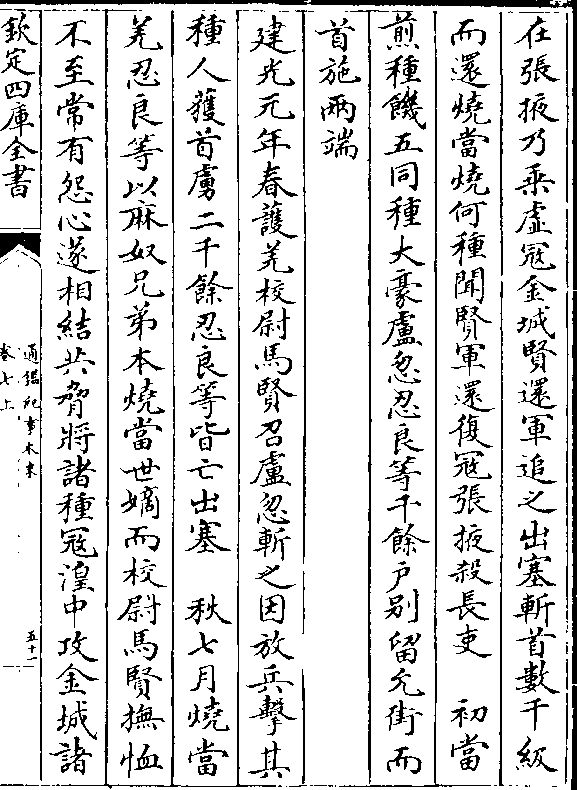 在張掖乃乘虛冦金城賢還軍追之出塞斬首數千級
而還燒當燒何種聞賢軍還復冦張掖殺長吏　初當
煎種饑五同種大豪盧忽忍良等千餘户别留允街而
首施兩端
建光元年春護羌校尉馬賢召盧忽斬之因放兵擊其
種人獲首虜二千餘忍良等皆亡出塞　秋七月燒當
羌忍良等以麻奴兄弟本燒當世嫡而校尉馬賢撫恤
不至常有怨心遂相結共脅將諸種冦湟中攻金城諸
欽定四庫全書
通鑑紀事本末
卷七上
五十一